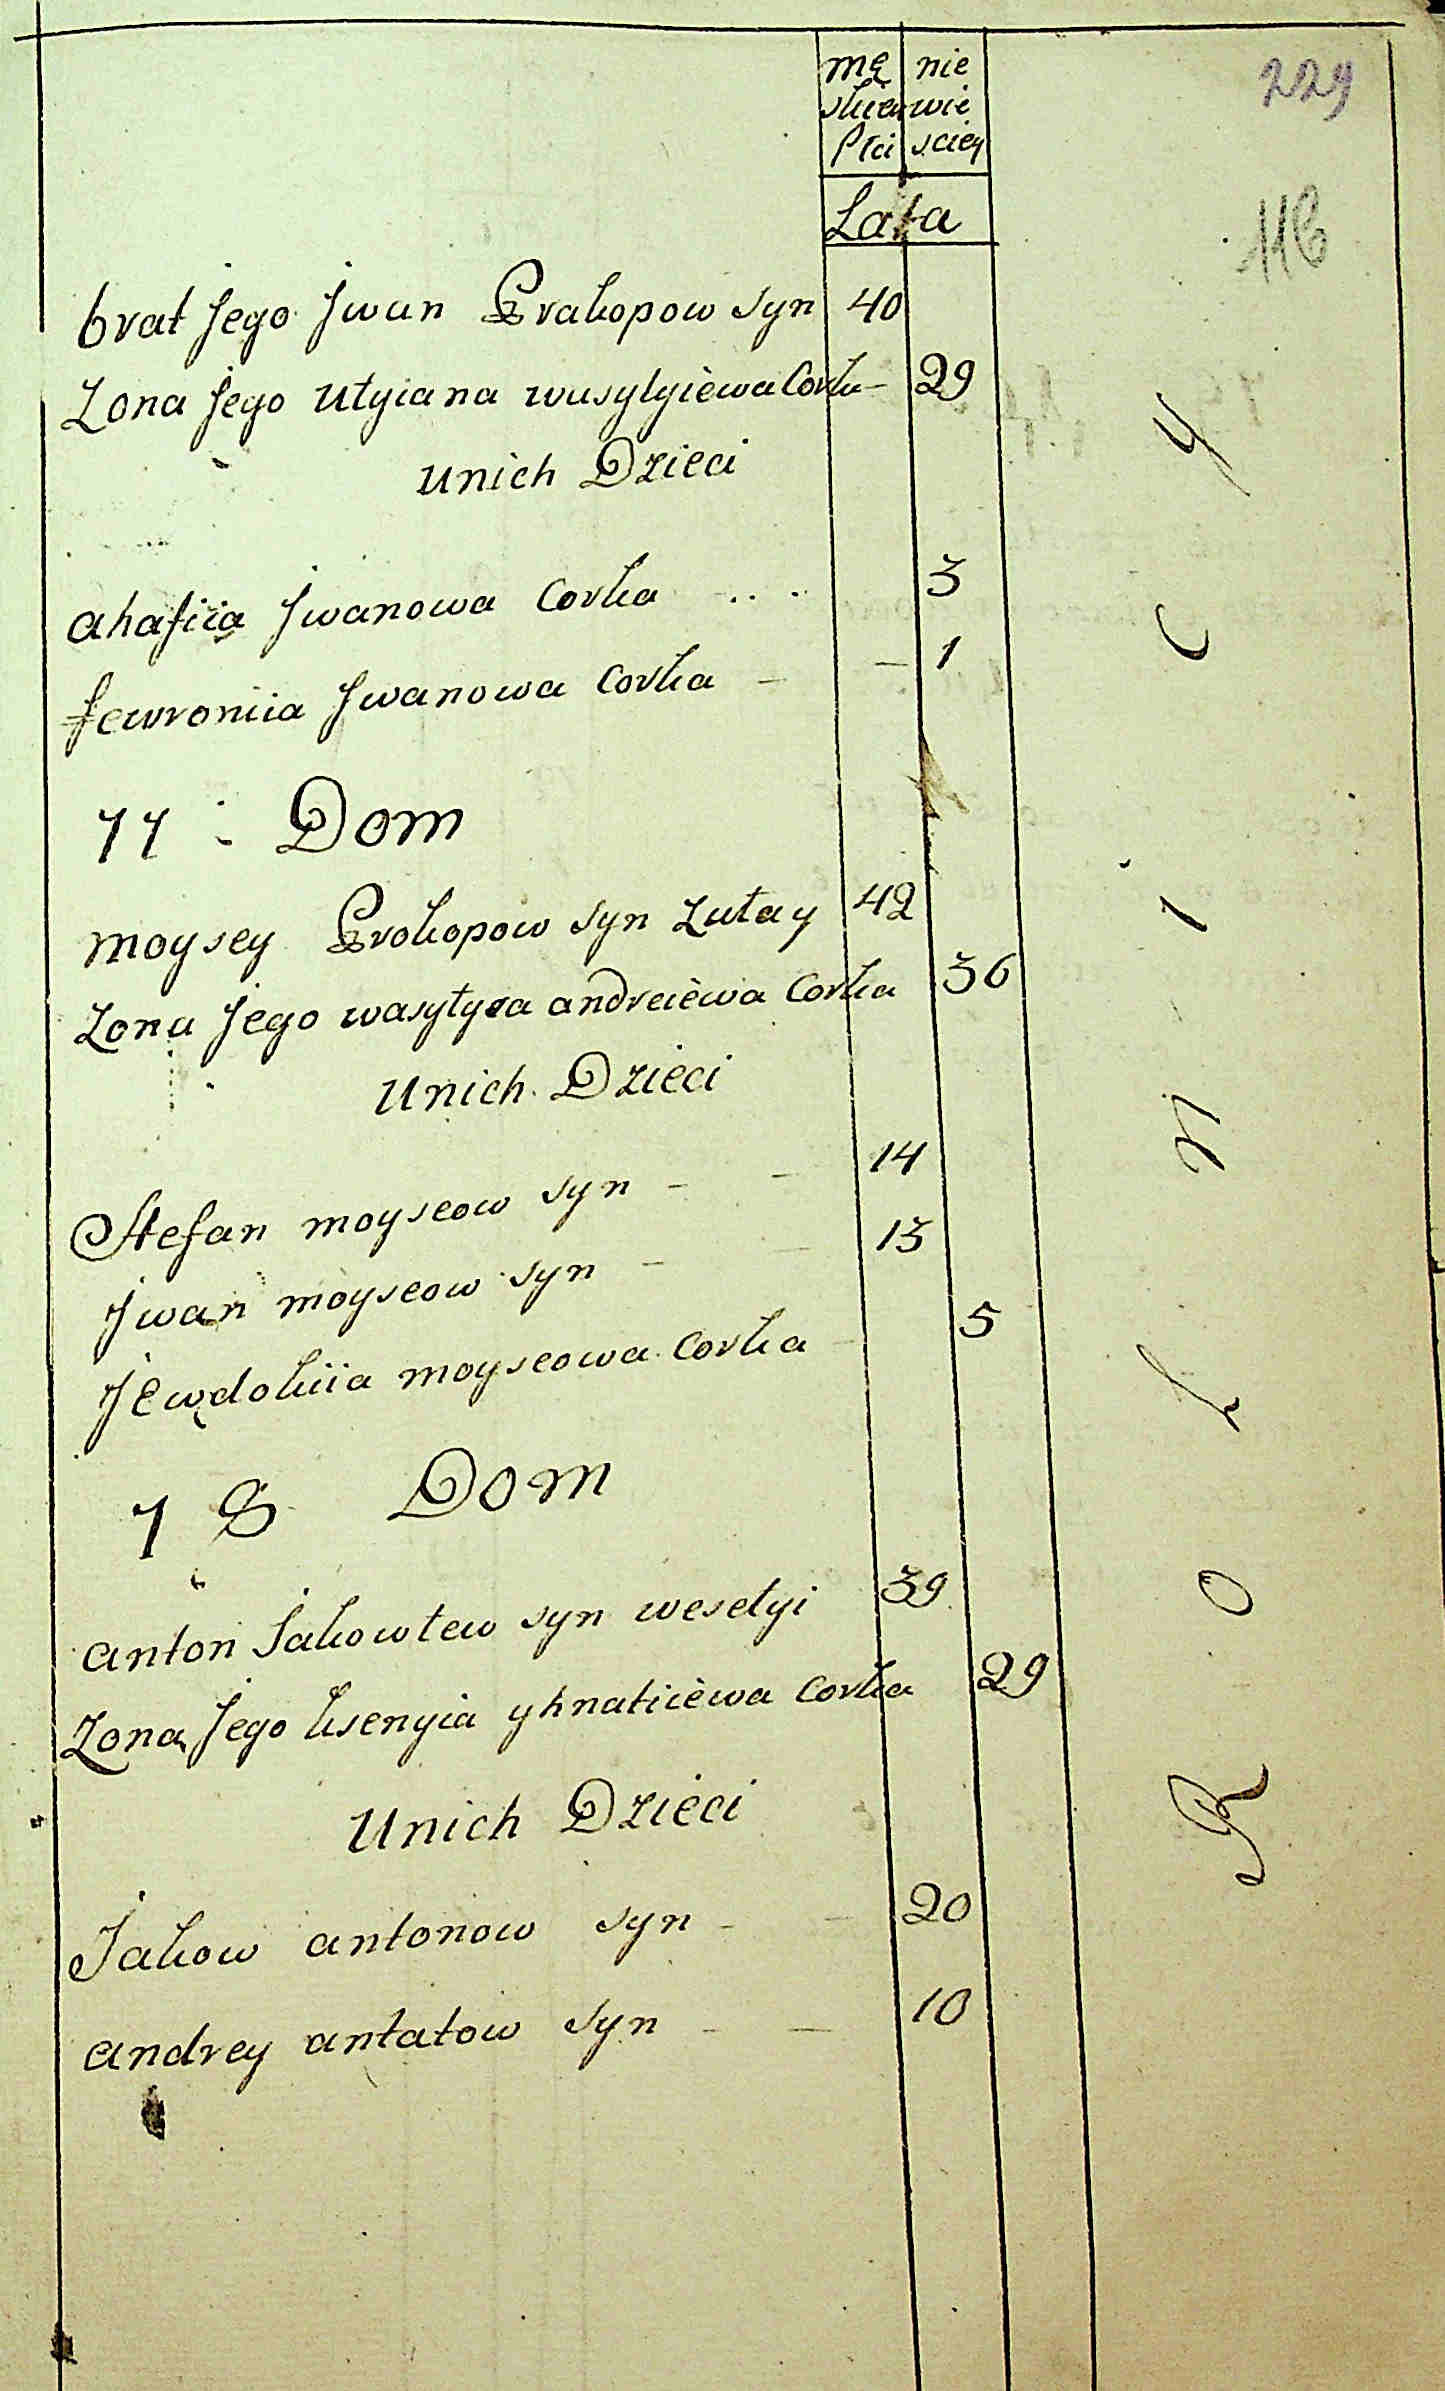 mę nie
skiey wie
Płci sciey
Lata
229
116
brat Jego Jwan Prakopow syn 40
Zona Jego Utyiana wasylyiewa Corka 29
unich Dzieci
ahafiia Jwanowa Corka 3
fewroniia Jwanowa Corka 1
77 Dom
moysey Prokopow syn Zułay 42
Zona Jego wasyłysa andreiewa Corka 36
Unich Dzieci
Stefan moyseow syn 14
Jwan moyseow syn 13
Jewdokiia moyseowa Corka 5
78 Dom
anton Jakowlew syn wesełyi 39
Zona Jego ksenyia yhnatiiewa Corka 29
Unich Dzieci
Jakow antonow syn 20
andrey antatow syn 10
Rolnicy